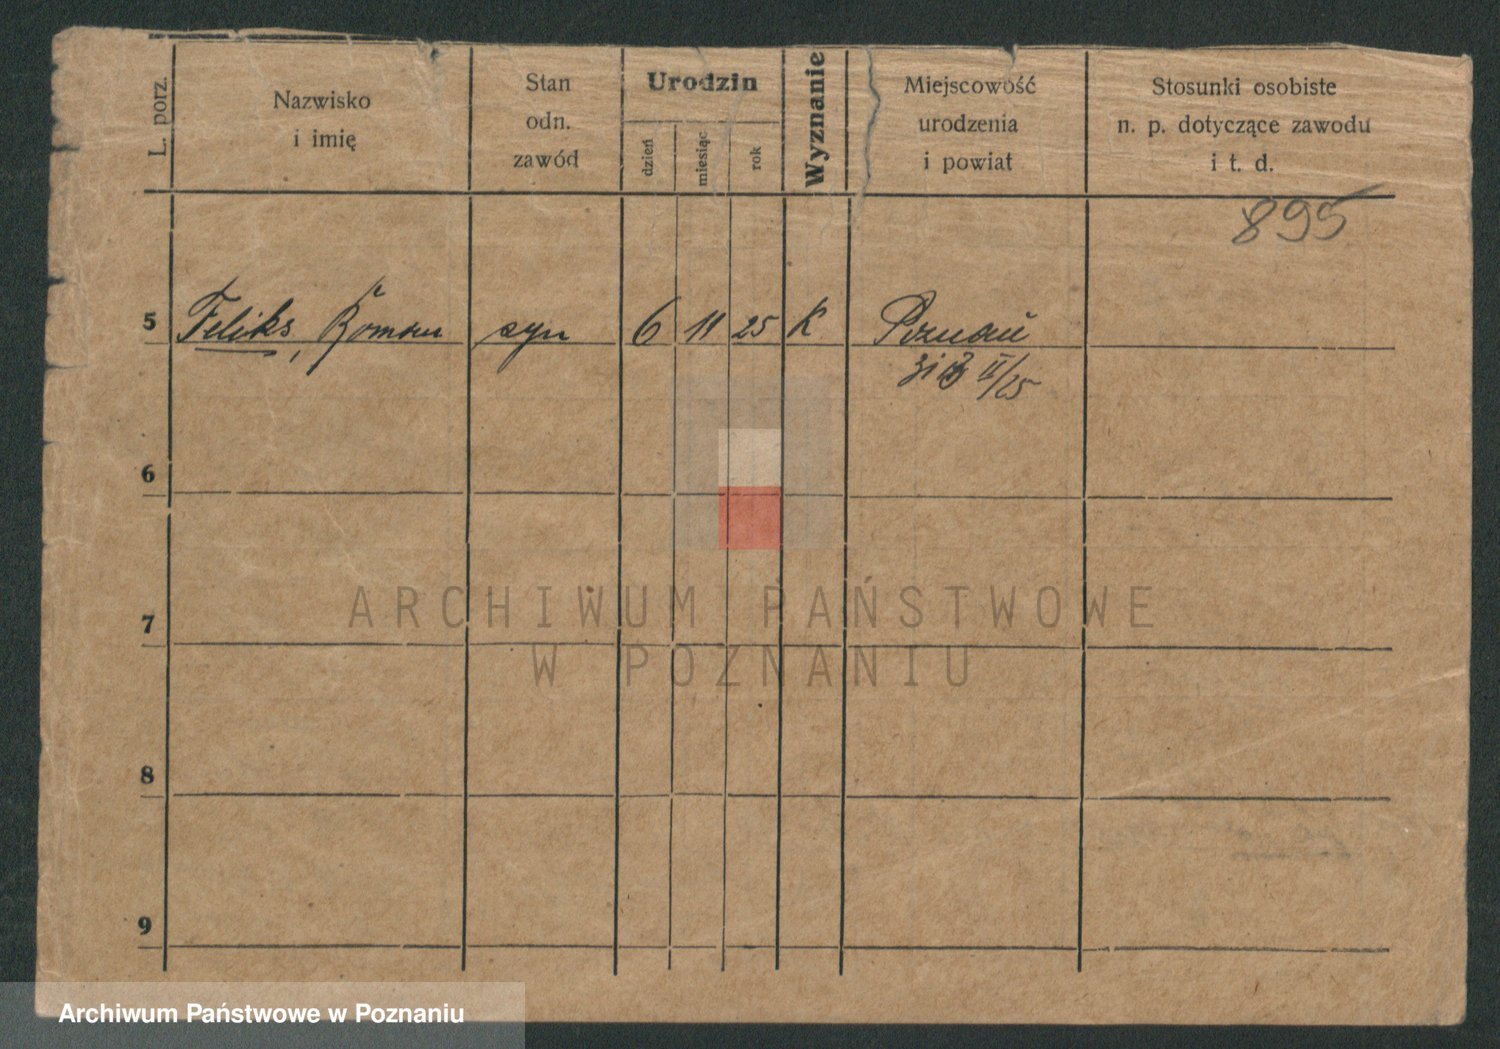 L. porz.
Nazwisko
i imię
Stan
odn.
zawód
Urodzin
dzień
miesiąc
rok
Wyznanie
Miejscowość
urodzenia
i powiat
Stosunki osobiste
n. p. dotyczące zawodu
i t. d.
895
5 Feliks, Roman syn 6 11 25 K Poznań
II/25
6
7
8
9
ARCHIWUM PAŃSTWOWE
W POZNANIU
Archiwum Państwowe w Poznaniu